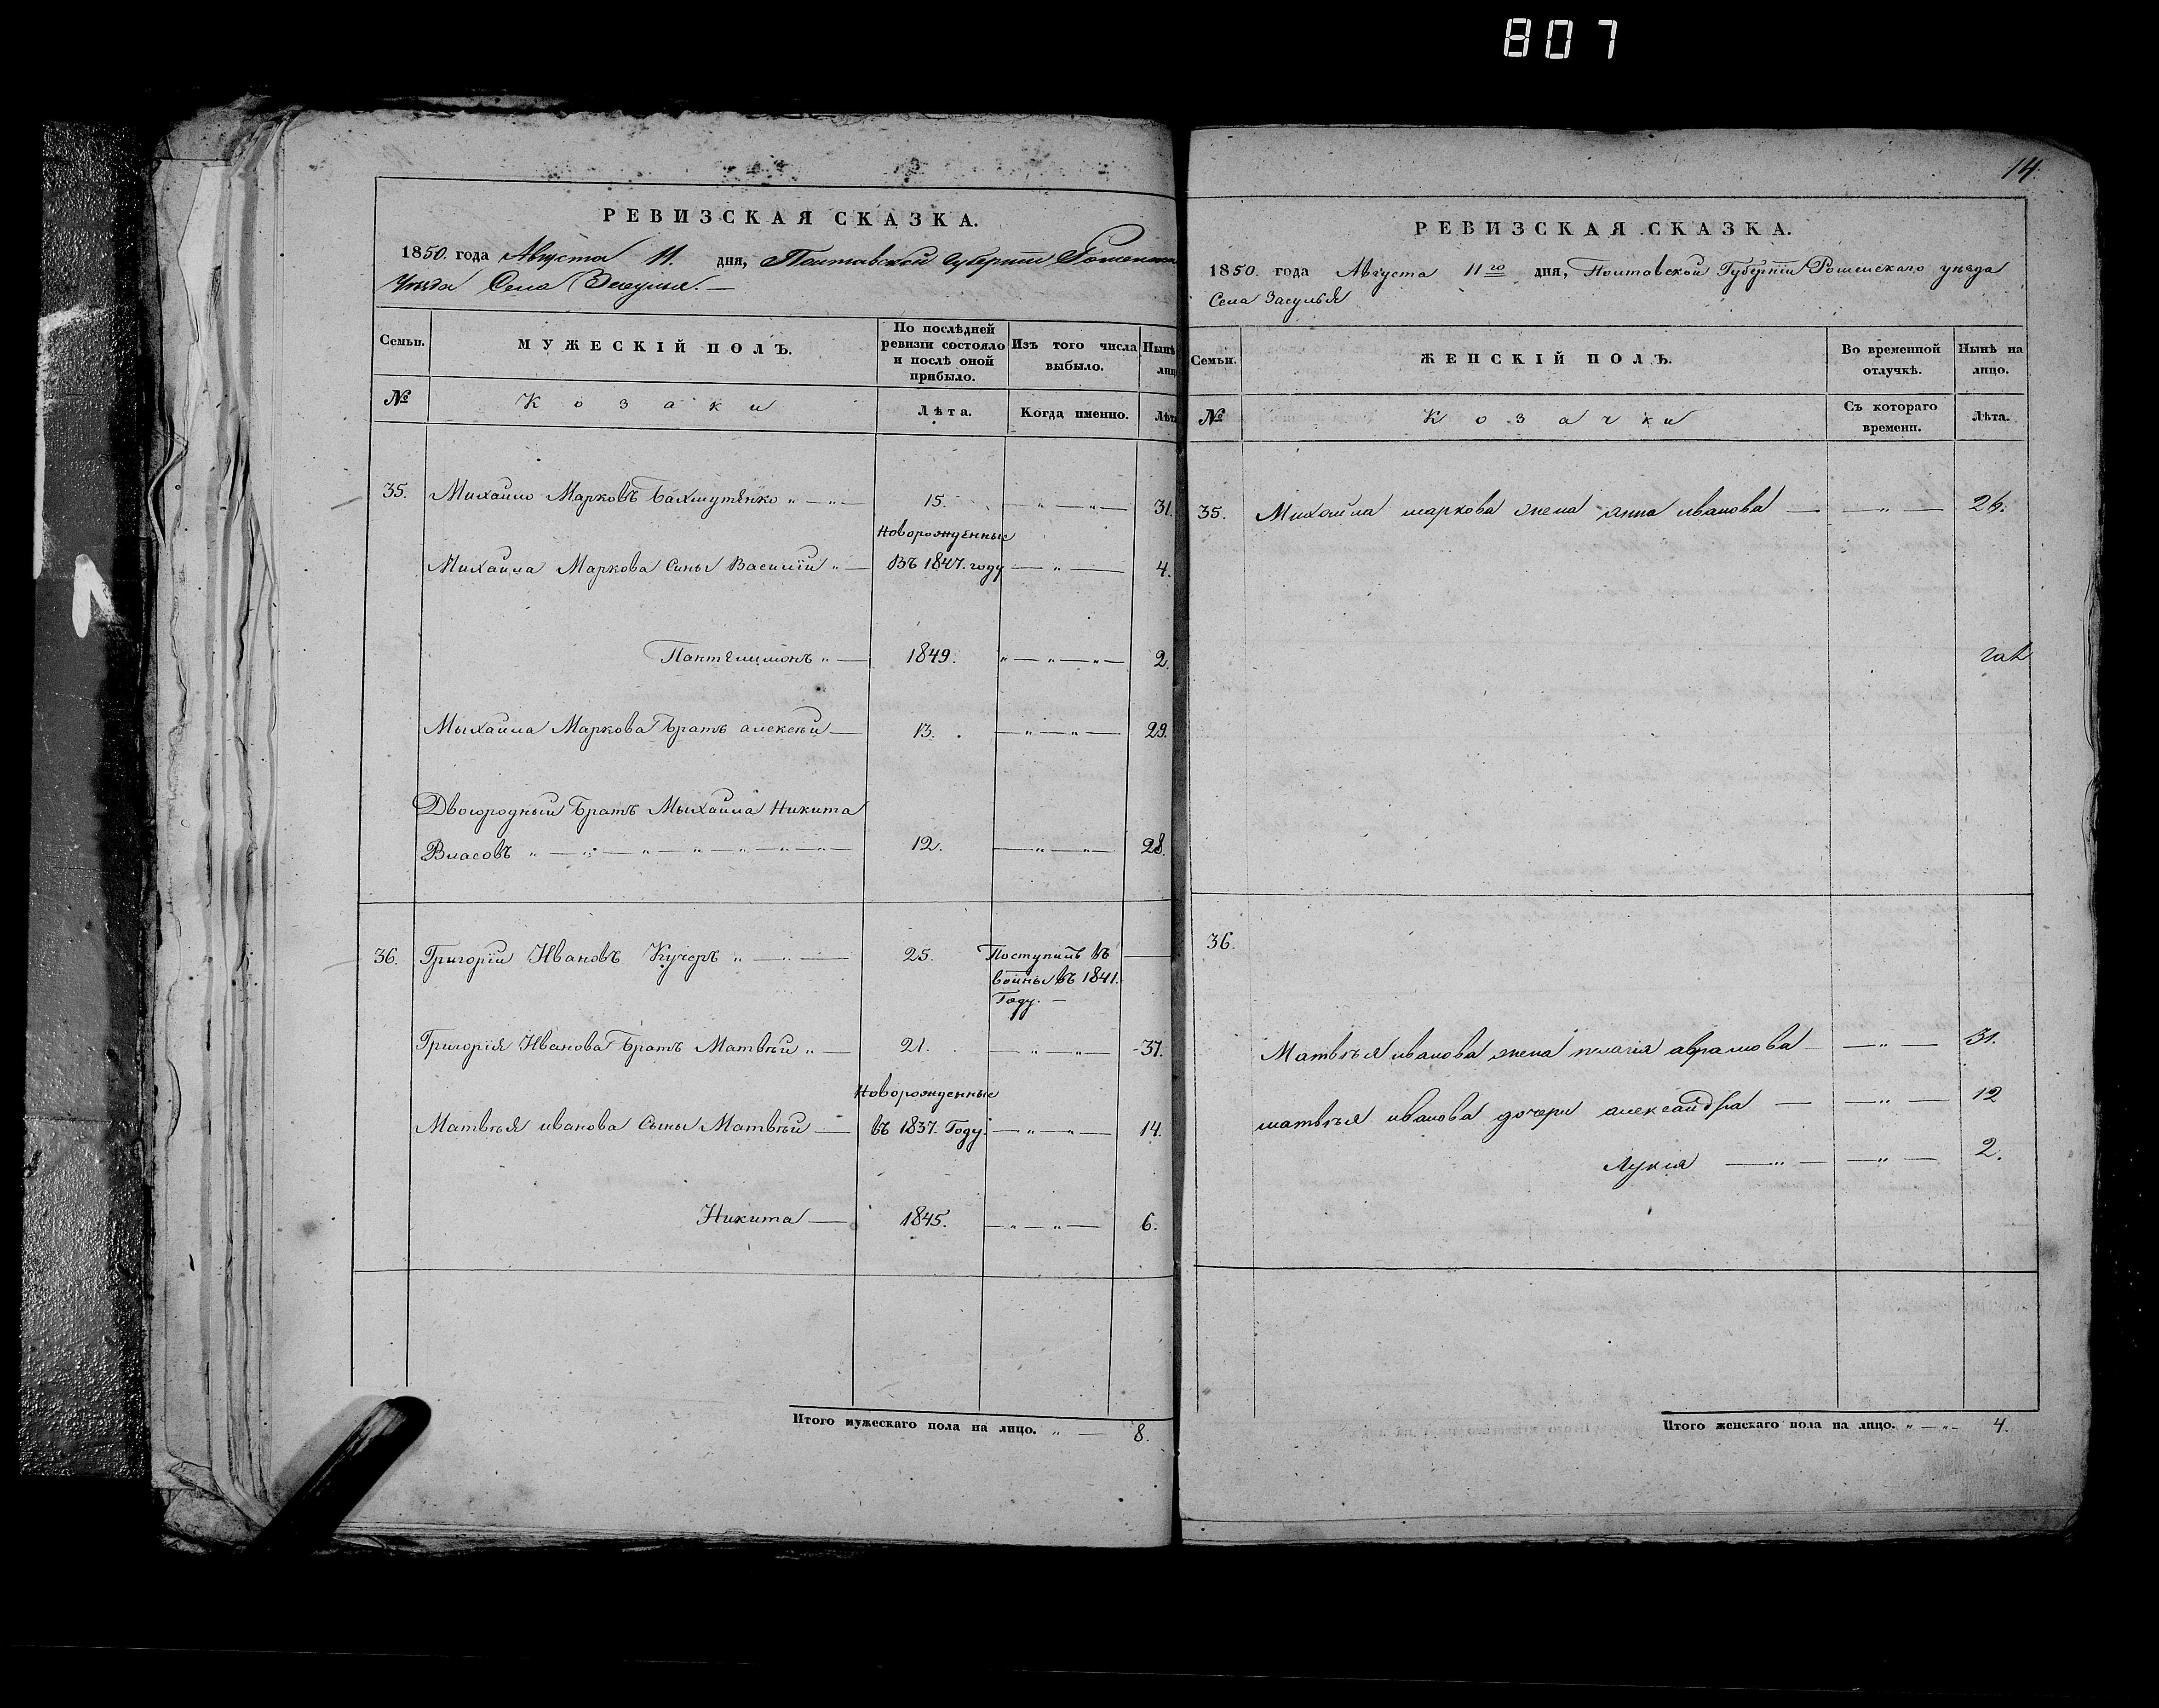 807
РЕВИЗСКАЯ СКАЗКА.
1850. года Августа 11. дня, Полтавской Губернии Роменска
Уѣзда Села Засулья. —
Семьи. МУЖЕСКІЙ ПОЛЪ. По послѣдней ревизіи состояло и послѣ оной прибыло. Изъ того числа выбыло. Нынѣ лиц
№ Козаки Лѣта. Когда именно. Лѣта
35. Михайло Марковъ Бахмутѣнко „ — „ — 15. — „ — „ — 31.
Новорожденные
Михайла Маркова Сины Василій „ — Въ 1847. году — „ — 4.
Пантелимонъ „ — 1849. „ — „ — „ — 2.
Мыхайла Маркова братъ алексѣй — 13. — „ — „ — 29.
Двоюродный братъ Мыхайла Никита
Власовъ „ — „ — „ — „ — „ — „ — 12. — „ — „ — 28.
36. Григорій Ивановъ Кучеръ „ — „ — 25. Поступилъ въ —
войны въ 1841.
Году. —
Григорія Иванова братъ Матвѣй „ — 21. — „ — „ — 37.
Новорожденные
Матвѣя иванова Сыны Матвѣй — въ 1837. Году. — „ — „ — 14.
Никита — 1845. — „ — „ — 6.
Итого мужескаго пола на лицо. „ — 8.
14.
РЕВИЗСКАЯ СКАЗКА.
1850. года Августа 11го дня, Полтавской Губерніи Роменскаго уѣзда
Села Засулья
Семьи. ЖЕНСКІЙ ПОЛЪ. Во временной отлучкѣ. Нынѣ на лицо.
№ Козачки Съ котораго времени. Лѣта.
35. Михайла маркова жена анна иванова — — „ — 26.
36.
Матвѣя иванова жена пелагія аврамова — „ — 31.
матвѣя иванова дочери александра — — „ — 12
Лукія — „ — — „ — 2.
Итого женскаго пола на лицо. „ — „ — 4.